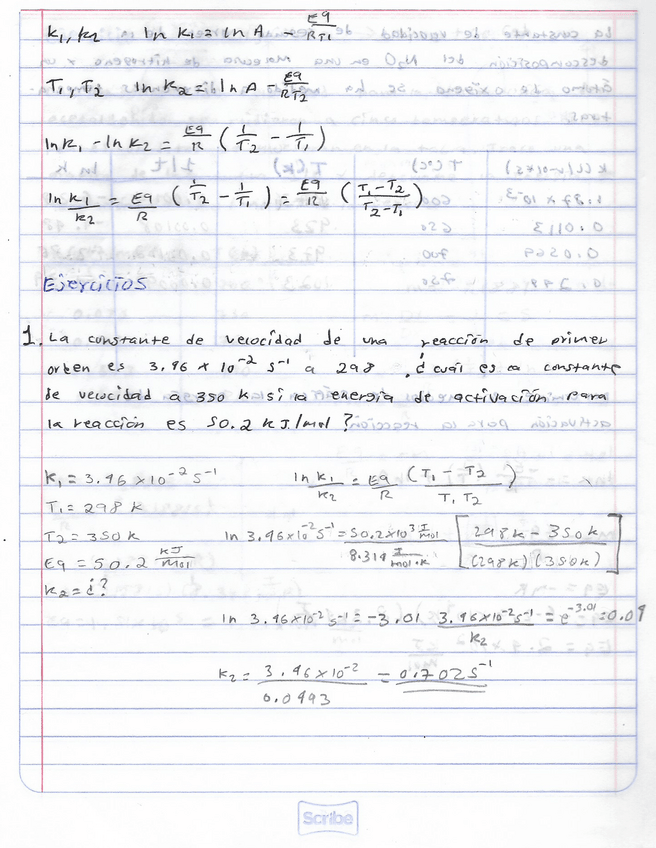 k₁, k₂ ln k₁ = ln A - Ea/RT₁
T₁, T₂ ln k₂ = ln A - Ea/RT₂
ln k₁ - ln k₂ = Ea/R (1/T₂ - 1/T₁)
ln k₁/k₂ = Ea/R (1/T₂ - 1/T₁) = Ea/R (T₁-T₂/T₂-T₁)
Ejercicios
1. La constante de velocidad de una reacción de primer
orden es 3.46 x 10⁻² s⁻¹ a 298 . ¿cuál es la constante
de velocidad a 350 k si la energía de activación para
la reacción es 50.2 kJ/mol?
k₁ = 3.46 x 10⁻² s⁻¹ ln k₁/k₂ = Ea/R (T₁ - T₂ / T₁ T₂)
T₁ = 298 k
T₂ = 350 k ln 3.46x10⁻² s⁻¹ = 50.2x10³ J/mol / 8.314 J/mol·k [298k - 350k / (298k)(350k)]
Ea = 50.2 kJ/mol
k₂ = ¿?
ln 3.46x10⁻² s⁻¹ = -3.01 3.46x10⁻² s⁻¹/k₂ = e⁻³·⁰¹ = 0.04
k₂ = 3.46 x 10⁻² / 0.0493 = 0.702 s⁻¹
Scribe